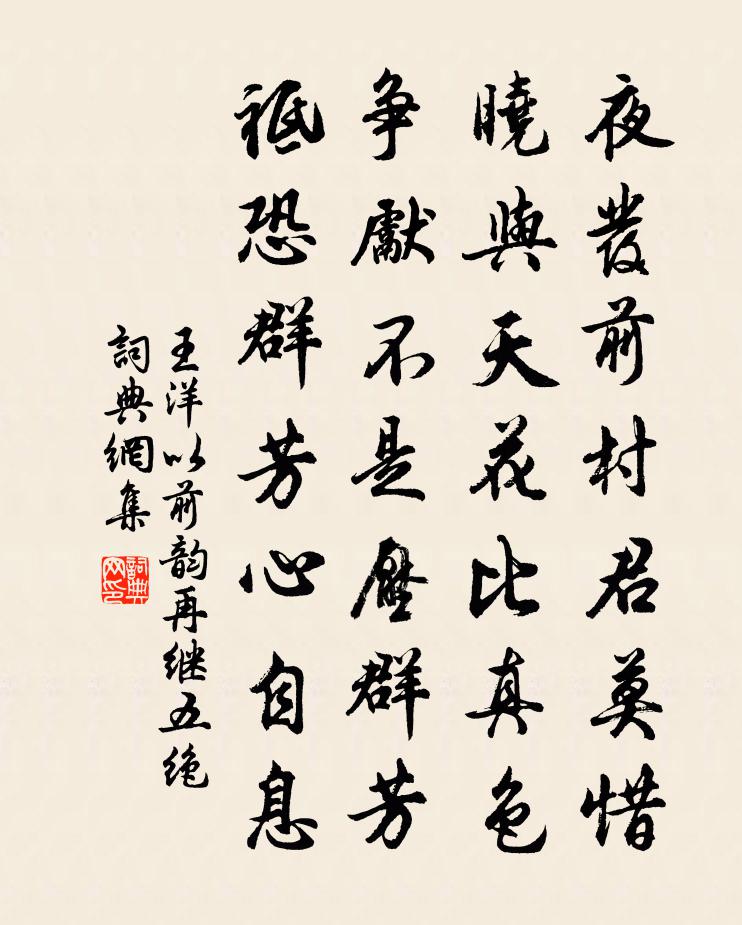 夜發前村君莫惜
曉與天花比真色
爭獻不是壓群芳
祗恐群芳心自息
王洋以前韵再继五绝
詞典網集
詞典网印